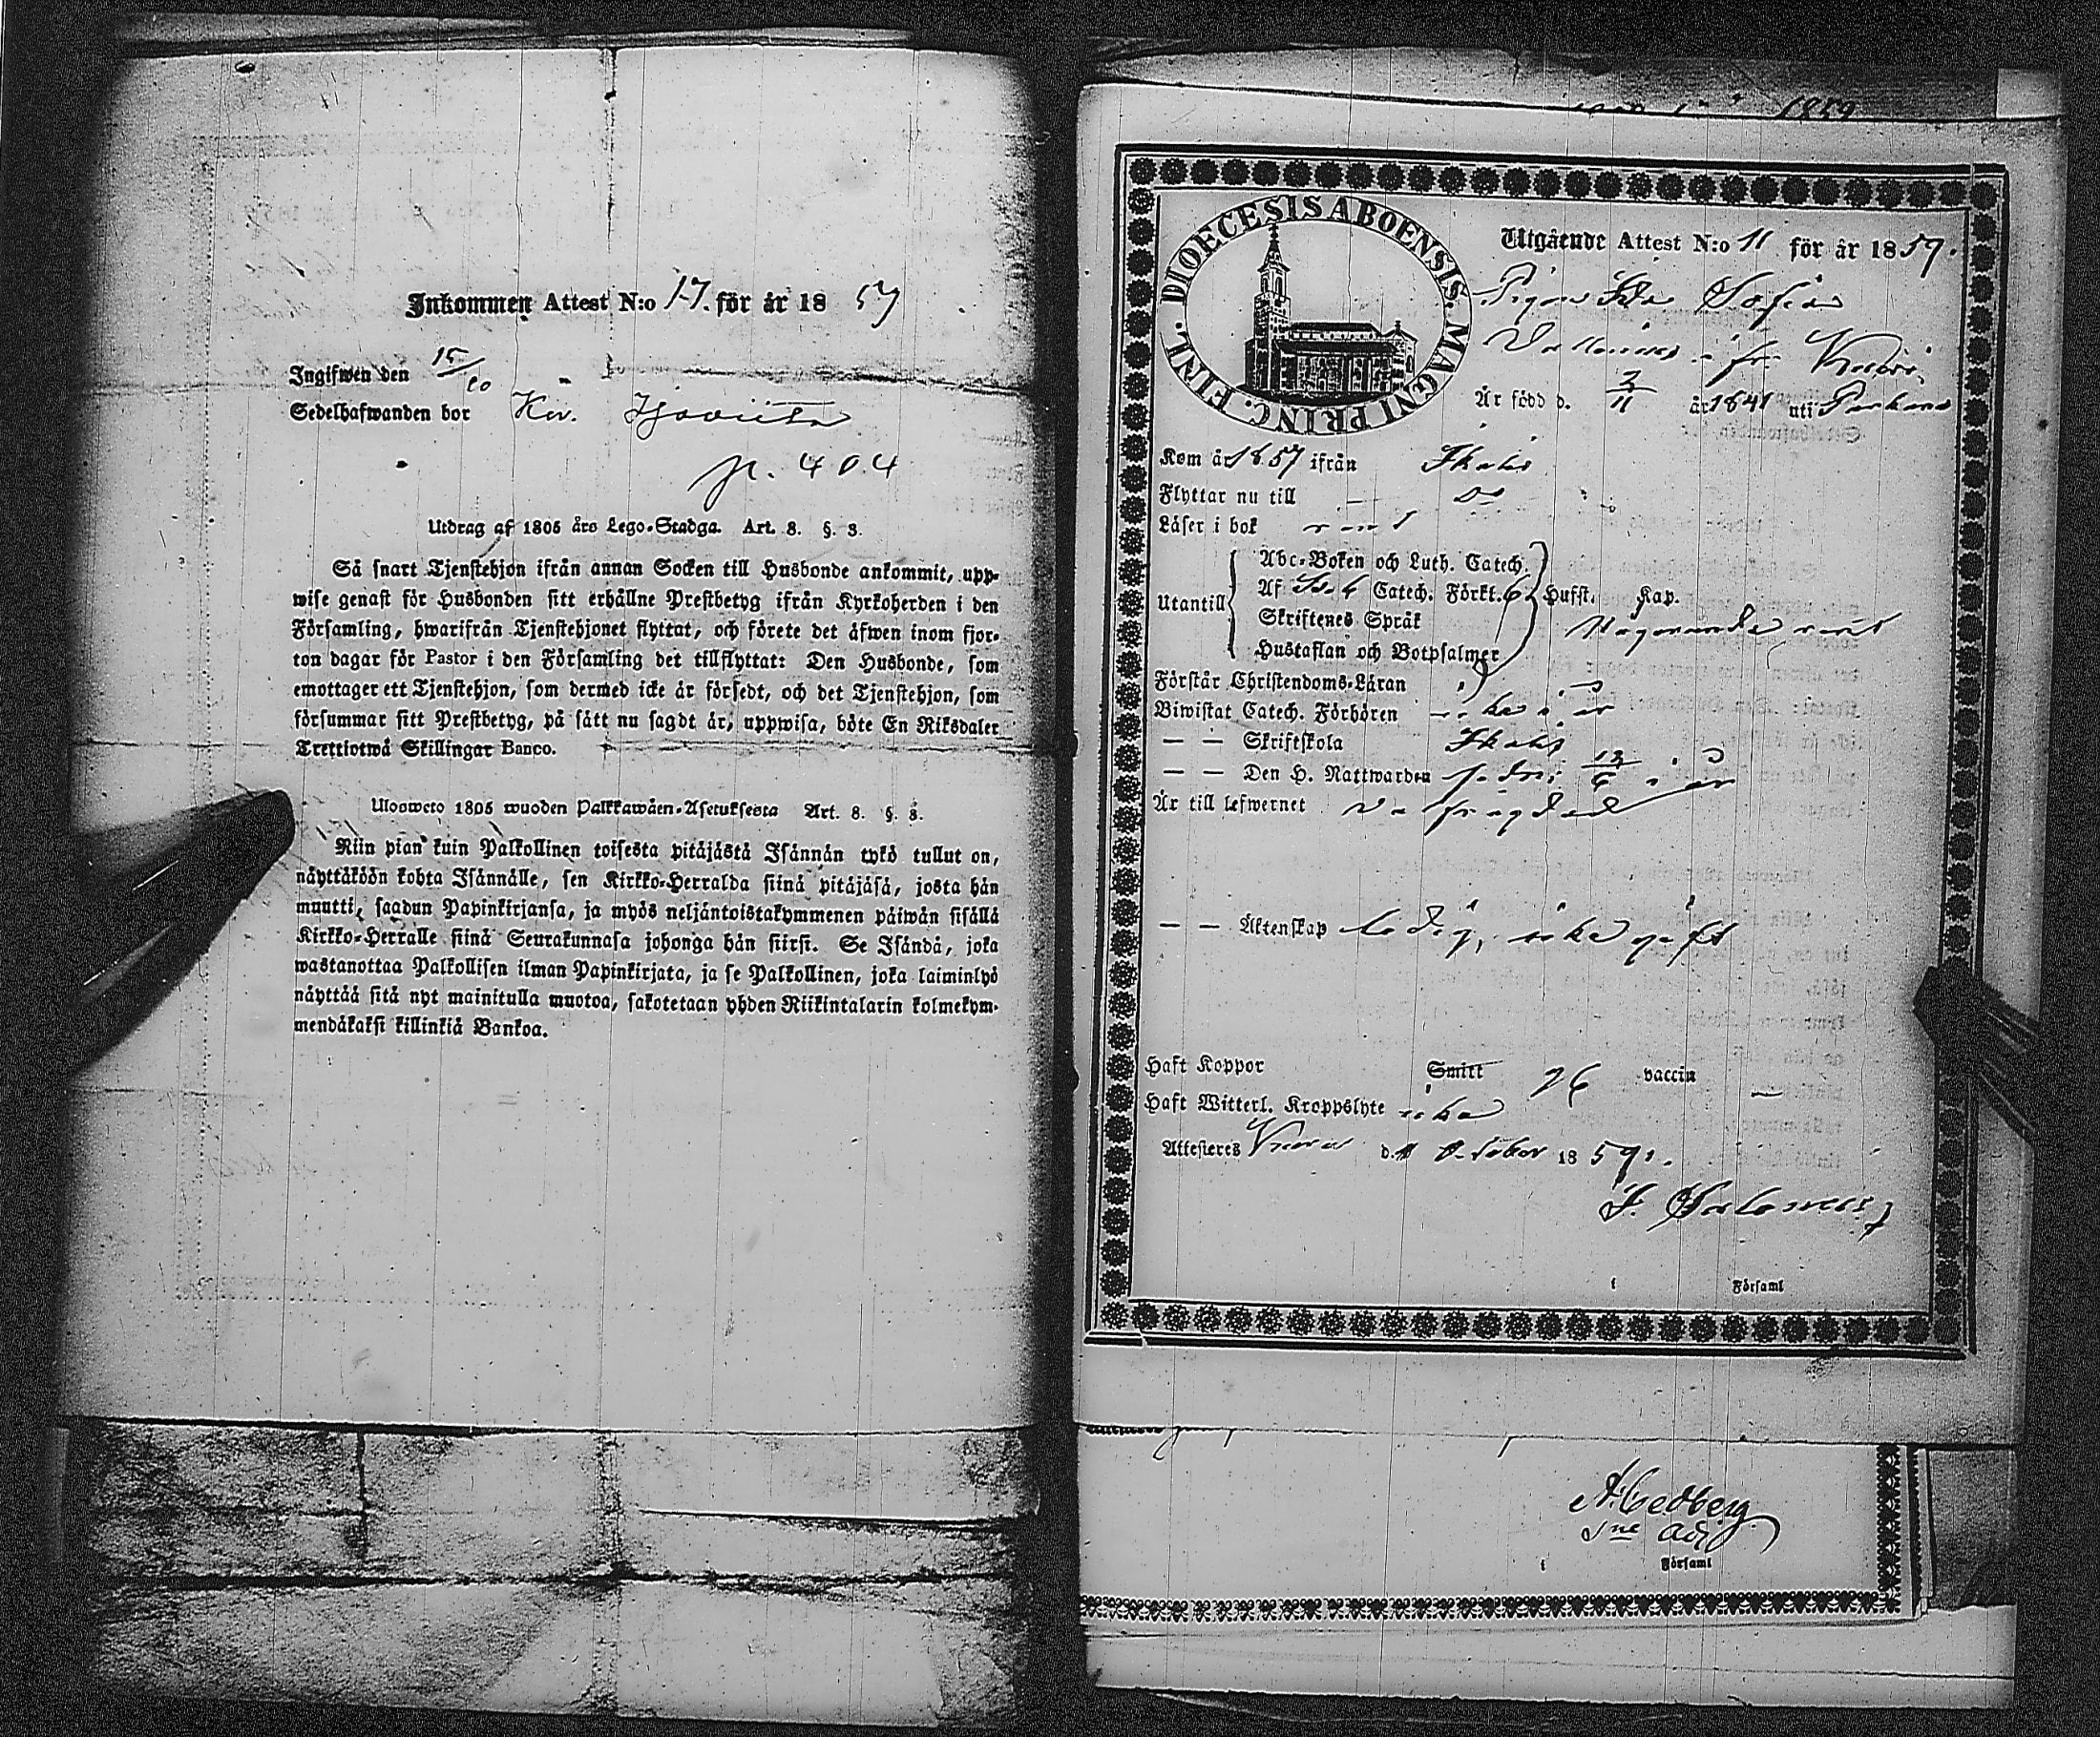 Inkommen Attest N:o 17. för år 18 59
Ingifwen den 15/10
Sedelhafwanden bor
p. 404
Utdrag af 1805 års Lego-Stadga. Art. 8. §. 3.
Så snart Tjenstehjon ifrån annan Socken till Husbonde ankommit, upp-
wise genast för Husbonden sitt erhållne Prestbetyg ifrån Kyrkoherden i den
Församling, hwarifrån Tjenstehjonet flyttat, och förete det äfwen inom fjor-
ton dagar för Pastor i den Församling det tillflyttat: Den Husbonde, som
emottager ett Tjenstehjon, som dermed icke är försedt, och det Tjenstehjon, som
försummar sitt Prestbetyg, på sätt nu sagdt är, uppwisa, böte En Riksdaler
Trettiotwå Skillingar Banco.
Ulosweto 1805 wuoden Palkkawäen-Asetuksesta Art. 8. §. 3.
Niin pian kuin Palkollinen toisesta pitäjästä Isännän tykö tullut on,
näyttäköön kohta Isännälle, sen Kirkko-Herralda siinä pitäjäsä, josta hän
muutti, saadun Papinkirjansa, ja myös neljäntoistakymmenen päiwän sisällä
Kirkko-Herralle siinä Seurakunnasa johonga hän siirsi. Se Isändä, joka
wastanottaa Palkollisen ilman Papinkirjata, ja se Palkollinen, joka laiminlyö
näyttää sitä nyt mainitulla muotoa, sakotetaan yhden Riikintalarin kolmekym-
mendäkaksi killinkiä Bankoa.
1859
DIOECESIS ABOENSIS. MAGNI PRINC. FINL.
Utgående Attest N:o 11 för år 1859.
Pigan Ida Sofia
Är född d. 2/11 år 1841 uti Parkano
Kom år 1857 ifrån Ikalis
Flyttar nu till — Do
Läser i bok rent
Utantill
Abc-Boken och Luth. Catech.
Af Catech. Förkl. 6 Hufst. Kap.
Skriftenes Språk
Hustaflan och Botpsalmer
Någorlunda rent
Förstår Christendoms-Läran
Biwistat Catech. Förhören icke i år
— — Skriftskola Ikalis
— — Den H. Nattwarden i år
Är till lefwernet
— — Äktenskap ledig, icke gift
Haft Koppor Smitt vaccin —
Haft Witterl. Kroppslyte icke
Attesteres d. October 1859.
i Församl
A. Cedberg
i Församl